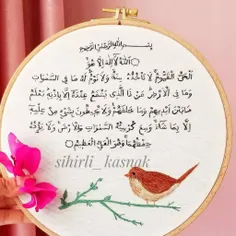 بِسْمِ اللّٰهِ الرَّحْمٰنِ الرَّحِيمِ
اَللّٰهُ لَٓا اِلٰهَ اِلَّا هُوَۚ
اَلْحَيُّ الْقَيُّومُۚ لَا تَأْخُذُهُ سِنَةٌ وَلَا نَوْمٌۜ لَهُ مَا فِي السَّمٰوَاتِ
وَمَا فِي الْاَرْضِۜ مَنْ ذَا الَّذ۪ي يَشْفَعُ عِنْدَهُٓ اِلَّا بِاِذْنِه۪ۜ يَعْلَمُ
مَا بَيْنَ اَيْد۪يهِمْ وَمَا خَلْفَهُمْۚ وَلَا يُح۪يطُونَ بِشَيْءٍ مِنْ عِلْمِه۪ٓ
اِلَّا بِمَا شَٓاءَۚ وَسِعَ كُرْسِيُّهُ السَّمٰوَاتِ وَالْاَرْضَۚ وَلَا يَؤُ۫دُهُ
حِفْظُهُمَاۚ وَهُوَ الْعَلِيُّ الْعَظ۪يمُ
sihirli_kasnak